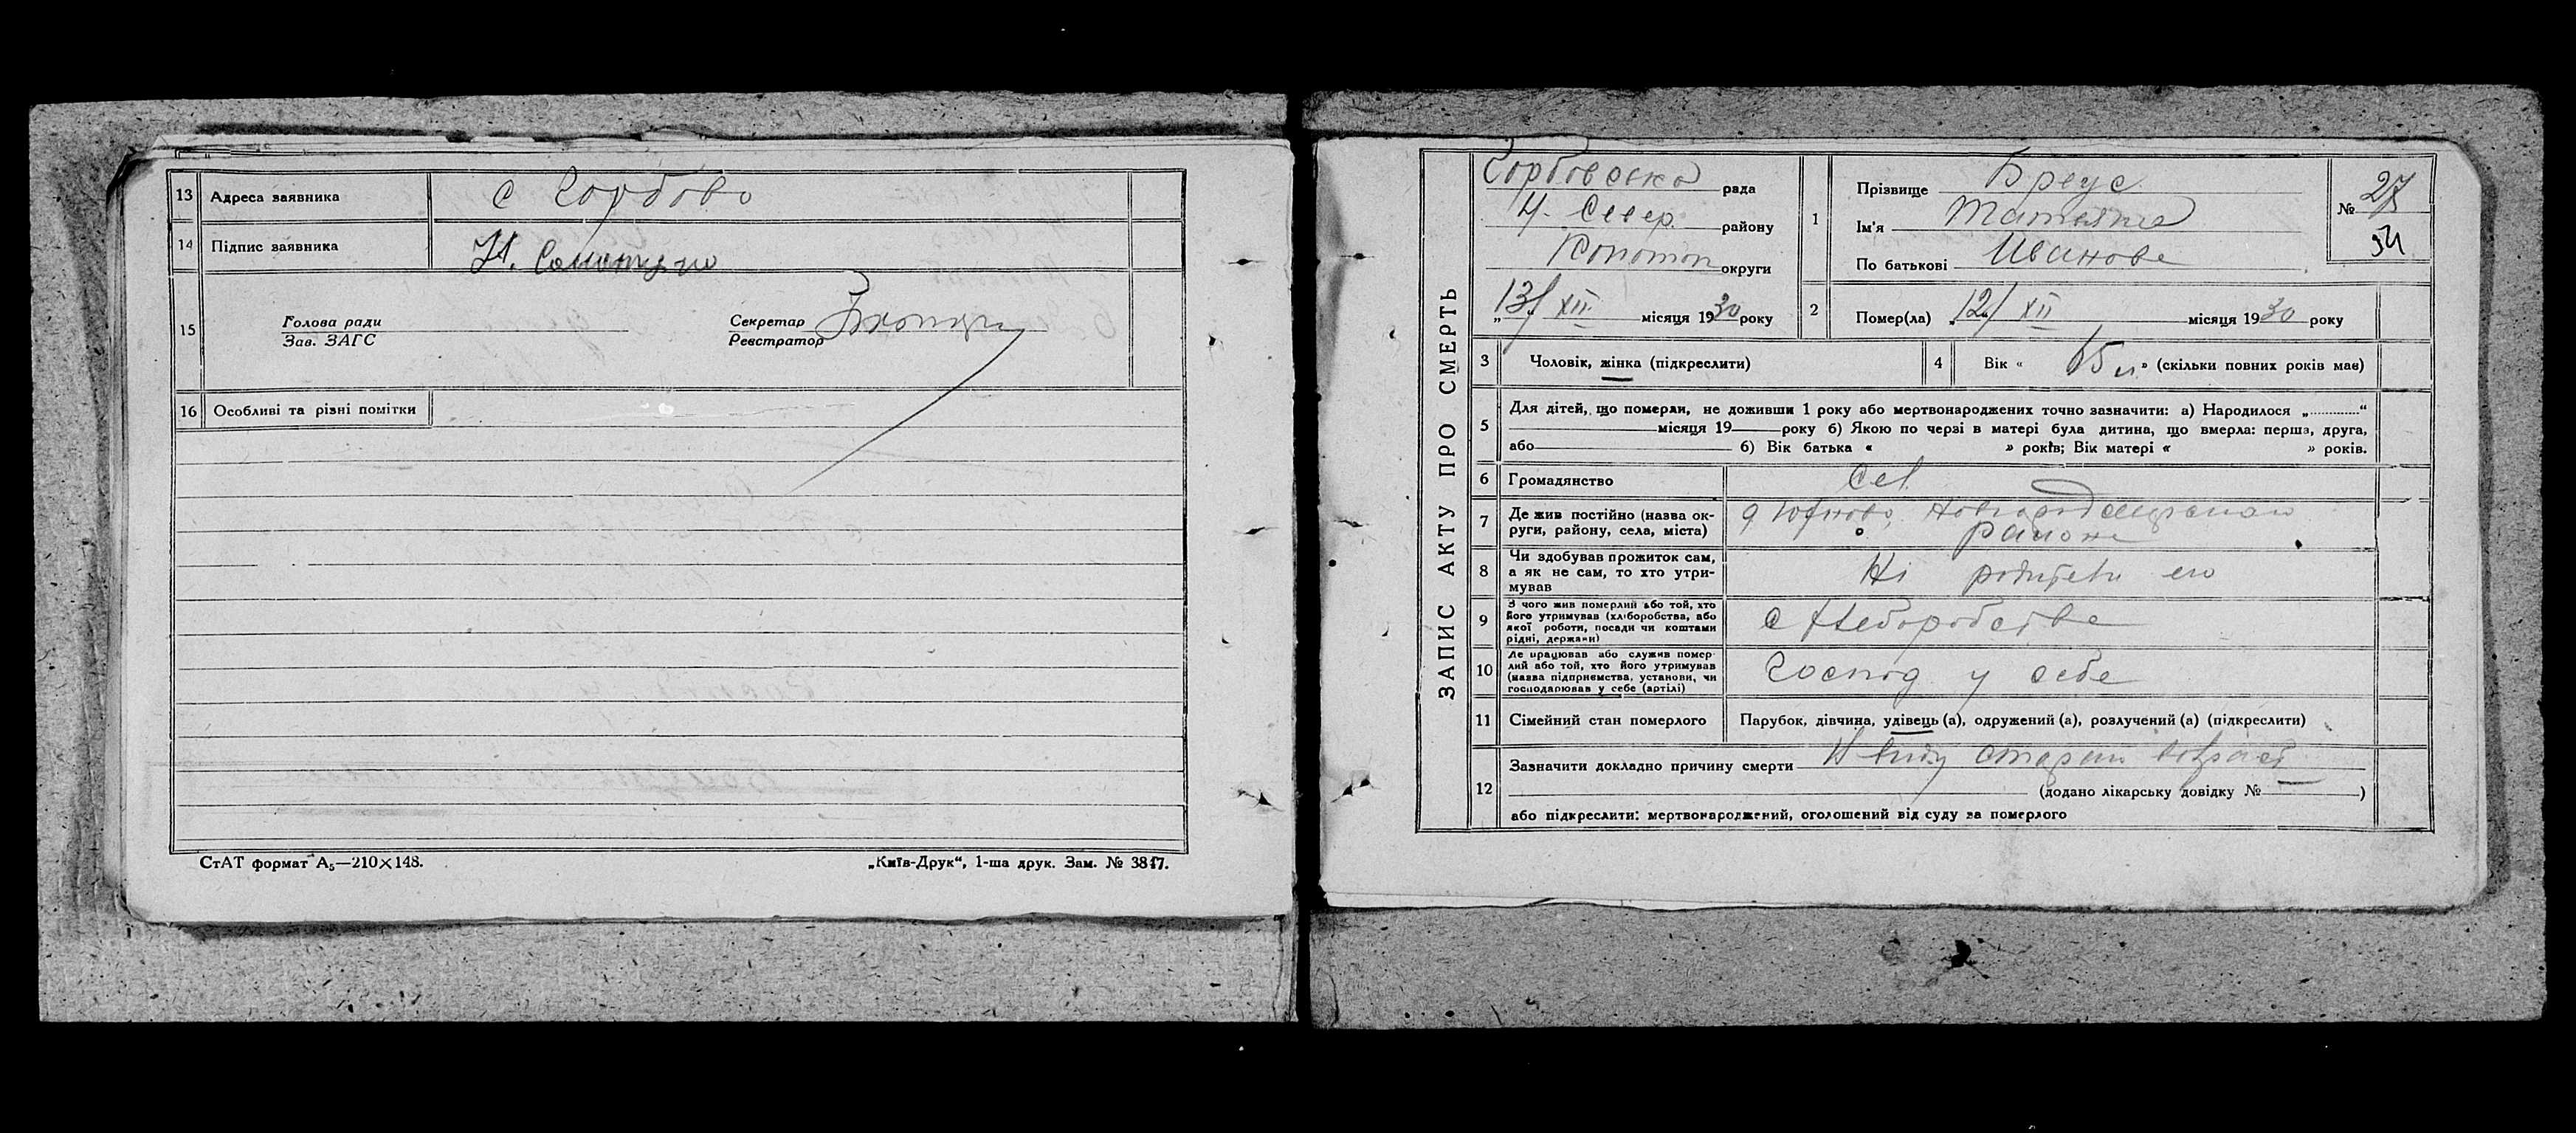 13 Адреса заявника с Горбово
14 Підпис заявника Н.
15 Голова ради
Зав. ЗАГС
Секретар
Реєстратор
16 Особливі та різні помітки
СтАТ формат А5—210×148.
„Київ-Друк“, 1-ша друк. Зам. № 3817.
ЗАПИС АКТУ ПРО СМЕРТЬ
Горбовска рада
Н. Север. району
Конотоп округи
„13/ XII. місяця 1930 року
1 Прізвище Бреус
Ім'я Татьяна
По батькові Иванова
№ 27
54
2 Помер(ла) „12/ XII місяця 1930 року
3 Чоловік, жінка (підкреслити)
4 Вік « 65 л. » (скільки повних років має)
5 Для дітей, що померли, не доживши 1 року або мертвонароджених точно зазначити: а) Народилося „............“
місяця 19 року б) Якою по черзі в матері була дитина, що вмерла: перша, друга,
або б) Вік батька « » років; Вік матері « » років.
6 Громадянство
7 Де жив постійно (назва ок-
руги, району, села, міста)
районе
8 Чи здобував прожиток сам,
а як не сам, то хто утри-
мував
Ні родители его
9 З чого жив померлий або той, хто
його утримував (хліборобства, або
якої роботи, посади чи коштами
рідні, держави)
с
10 Де працював або служив помер-
лий або той, хто його утримував
(назва підприємства, установи, чи
господарював у себе (артілі)
Господ у себе
11 Сімейний стан померлого Парубок, дівчина, удівець (а), одружений (а), розлучений (а) (підкреслити)
12 Зазначити докладно причину смерти В виду старой возраст
(додано лікарську довідку № — )
або підкреслити: мертвонароджений, оголошений від суду за померлого